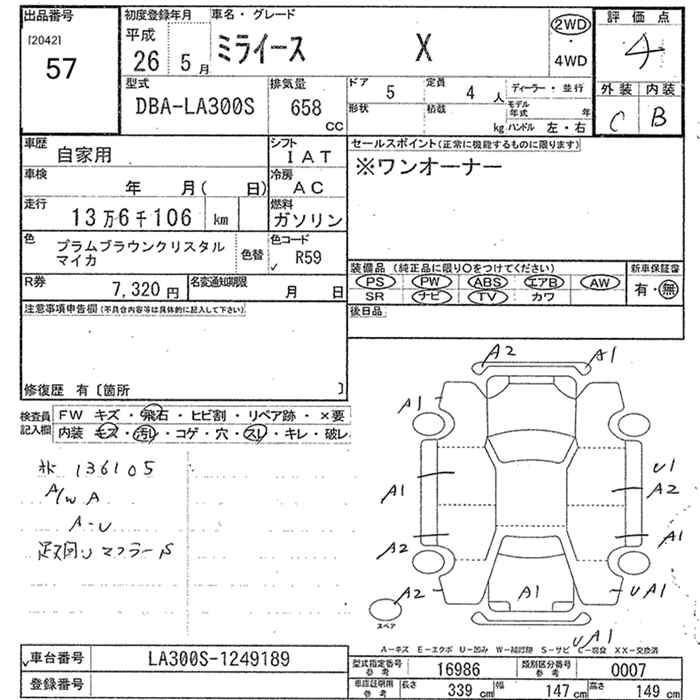 出品番号
[2042]
57
初度登録年月
平成
26
5月
車名・グレード
ミライース X
2WD
・
4WD
評価点
4
外装 内装
C B
型式
DBA-LA300S
排気量
658
cc
ドア
5
定員
4人
ディーラー・並行
形状
積載
kg
モデル年式
年
ハンドル 左・右
車歴
自家用
シフト
IAT
車検
年 月( 日)
冷房
AC
走行
13万6千106 km
燃料
ガソリン
色
プラムブラウンクリスタル
マイカ
色替
色コード
R59
R券
7,320円
名変通知期限
月 日
セールスポイント(正常に機能するものに限ります)
※ワンオーナー
装備品(純正品に限り○をつけてください)
PS PW ABS エアB AW
SR ナビ TV カワ
新車保証書
有・無
後日品
注意事項申告欄(不具合内容等は具体的に記入して下さい)
修復歴 有〔箇所 〕
検査員
記入欄
FW キズ・飛石・ヒビ割・リペア跡・×要
内装 キズ・汚レ・コゲ・穴・スレ・キレ・破レ
136105
A/W A
A-U
マフラーS
A2
A1
A1
A1
U1
A2
A2
A1
A2
A1
UA1
UA1
スペア
A-キズ E-エクボ U-凹み W-補修跡 S-サビ C-腐食 XX-交換済
車台番号
LA300S-1249189
登録番号
型式指定番号
参考
16986
類別区分番号
参考
0007
車庫証明用
参考
長さ
339 cm
幅
147 cm
高さ
149 cm